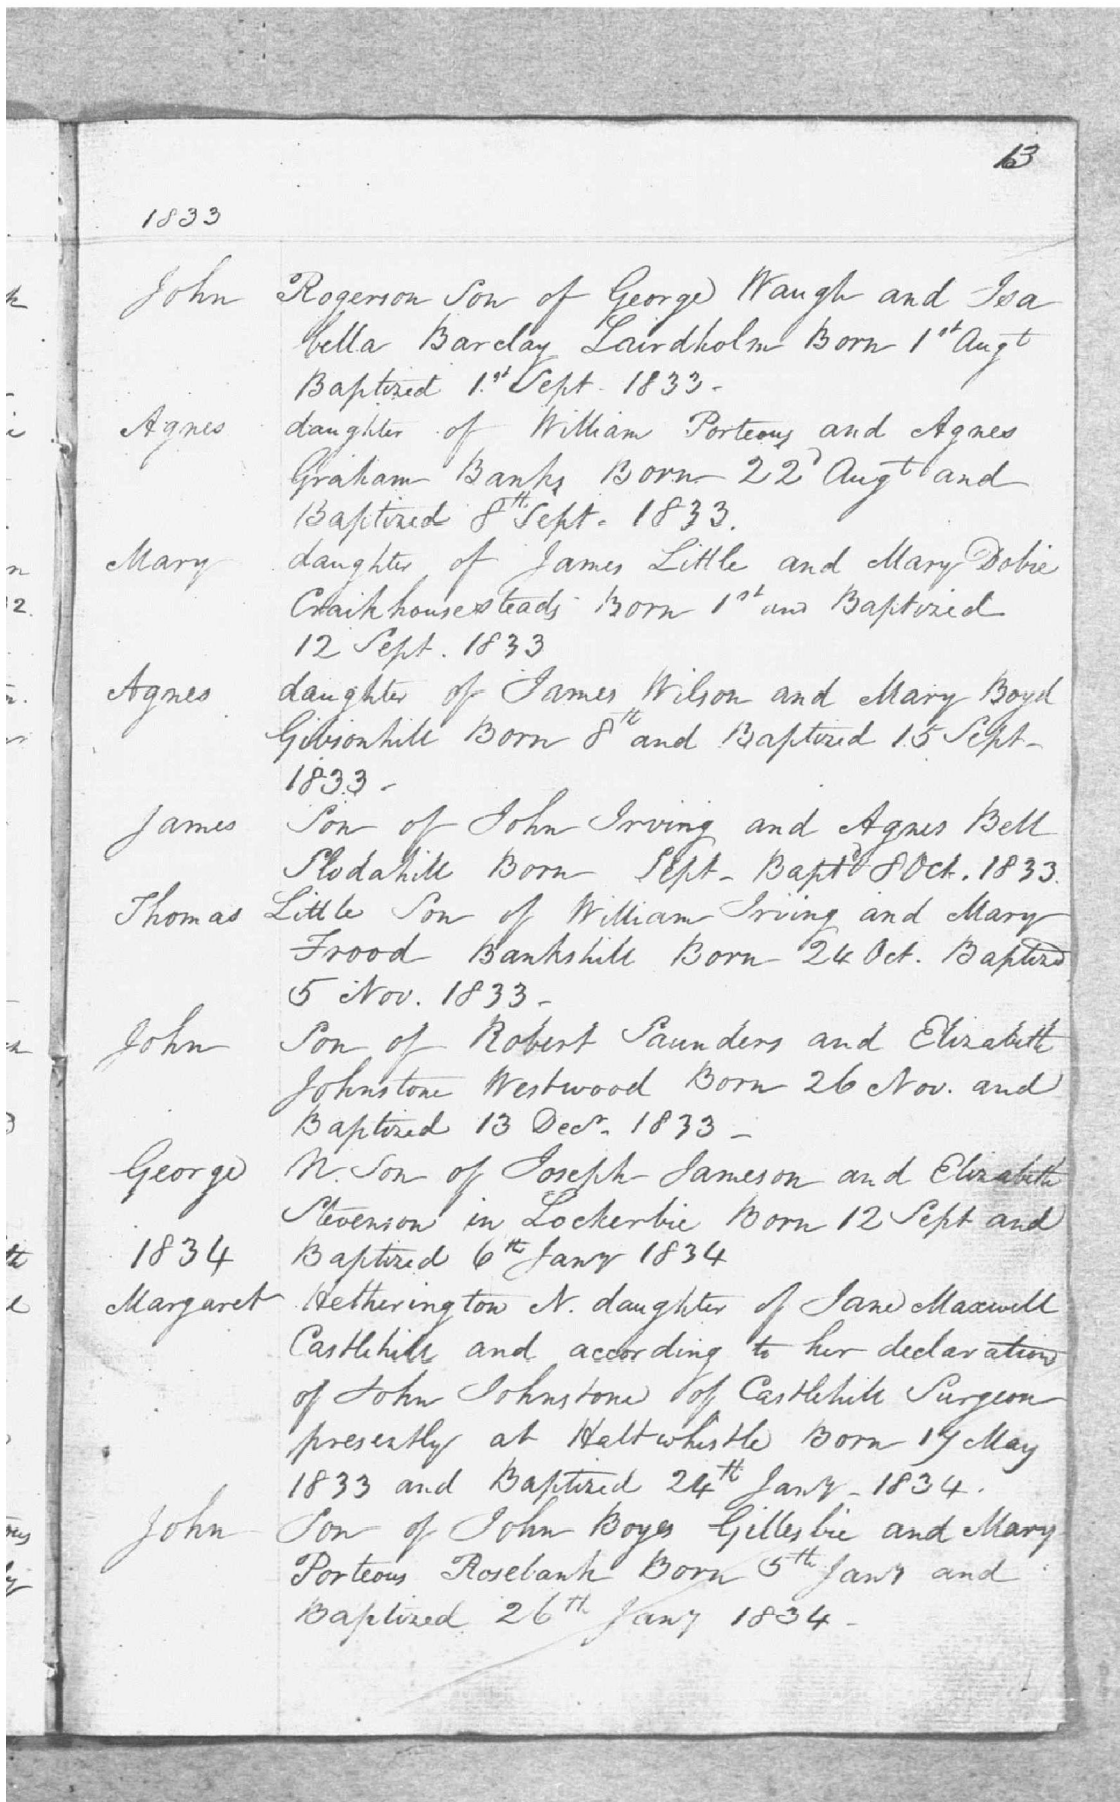 13
1833
John Rogerson Son of George Waugh and Isa
bella Barclay Lairdholm Born 1st Augt
Baptized 1st Sept. 1833 -
Agnes daughter of William Porteous and Agnes
Graham Banks Born 22d Augt and
Baptized 8th Sept. 1833.
Mary daughter of James Little and Mary Dobie
Craikhousesteads Born 1st and Baptized
12 Sept. 1833
Agnes daughter of James Wilson and Mary Boyd
Gibsonhill Born 8th and Baptized 15 Sept -
1833 -
James Son of John Irving and Agnes Bell
Slodahill Born Sept - Baptd 8 Oct. 1833.
Thomas Little Son of William Irving and Mary
Frood Bankshill Born 24 Oct. Baptized
5 Nov. 1833 -
John Son of Robert Saunders and Elizabeth
Johnstone Westwood Born 26 Nov. and
Baptized 13 Decr. 1833 -
George N. Son of Joseph Jameson and Elizabeth
Stevenson in Lockerbie Born 12 Sept and
1834 Baptized 6th Jany 1834
Margaret Hetherington N. daughter of Jane Maxwell
Castlehill and according to her declaration
of John Johnstone of Castlehill Surgeon
presently at Haltwhistle Born 17 May
1833 and Baptized 24th Jany - 1834.
John Son of John Boyes Gillesbie and Mary
Porteous Rosebank Born 5th Jany and
Baptized 26th Jany 1834 -